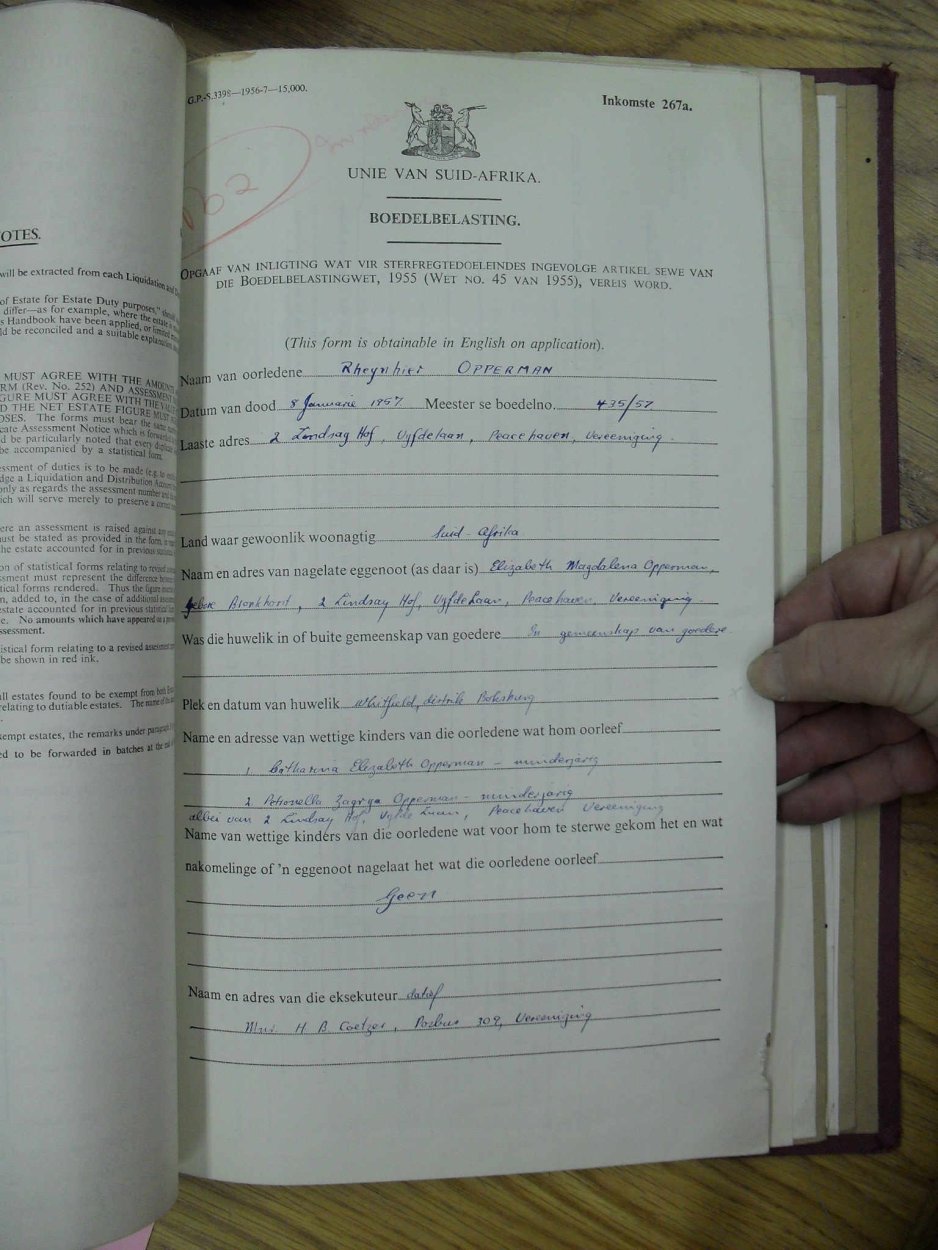 OTES.
will be extracted from each Liquidation and
of Estate for Estate Duty purposes,"
differ—as for example, where the estate
s Handbook have been applied, or limited
ld be reconciled and a suitable explanation
MUST AGREE WITH THE AMOUNT
RM (Rev. No. 252) AND ASSESSMENT
GURE MUST AGREE WITH THE
D THE NET ESTATE FIGURE MUST
OSES. The forms must bear the same
cate Assessment Notice which is forwarded
d be particularly noted that every duplicate
be accompanied by a statistical form.
ssment of duties is to be made (e.g. to
dge a Liquidation and Distribution Account
only as regards the assessment number and
ich will serve merely to preserve a correct
ere an assessment is raised against any
must be stated as provided in the form,
the estate accounted for in previous
on of statistical forms relating to revised
ssment must represent the difference between
tical forms rendered. Thus the figure
n, added to, in the case of additional
estate accounted for in previous statistical
e. No amounts which have appeared on a
ssessment.
istical form relating to a revised assessment
be shown in red ink.
ll estates found to be exempt from both
relating to dutiable estates. The name of the
empt estates, the remarks under paragraph
ed to be forwarded in batches at the end of
G.P.-S.3398—1956-7—15,000.
Inkomste 267a.
UNIE VAN SUID-AFRIKA.
BOEDELBELASTING.
OPGAAF VAN INLIGTING WAT VIR STERFREGTEDOELEINDES INGEVOLGE ARTIKEL SEWE VAN
DIE BOEDELBELASTINGWET, 1955 (WET NO. 45 VAN 1955), VEREIS WORD.
(This form is obtainable in English on application).
Naam van oorledene Rheynhier OPPERMAN
Datum van dood 8 Januarie 1957 Meester se boedelno. 435/57
Laaste adres 2 Lindsay Hof, Vyfdelaan, Peacehaven, Vereeniging.
Land waar gewoonlik woonagtig Suid-Afrika
Naam en adres van nagelate eggenoot (as daar is) Elizabeth Magdalena Opperman,
gebore Bronkhorst, 2 Lindsay Hof, Vyfdelaan, Peacehaven, Vereeniging
Was die huwelik in of buite gemeenskap van goedere In gemeenskap van goedere
Plek en datum van huwelik Whitfield, distrik Boksburg
Name en adresse van wettige kinders van die oorledene wat hom oorleef
1. Catharina Elizabeth Opperman - minderjarig
2. Petronella Zagrya Opperman - minderjarig
albei van 2 Lindsay Hof, Vyfde Laan, Peacehaven Vereeniging
Name van wettige kinders van die oorledene wat voor hom te sterwe gekom het en wat
nakomelinge of 'n eggenoot nagelaat het wat die oorledene oorleef
Geen
Naam en adres van die eksekuteur datief
Mnr. H. B. Coetzer, Posbus 309, Vereeniging